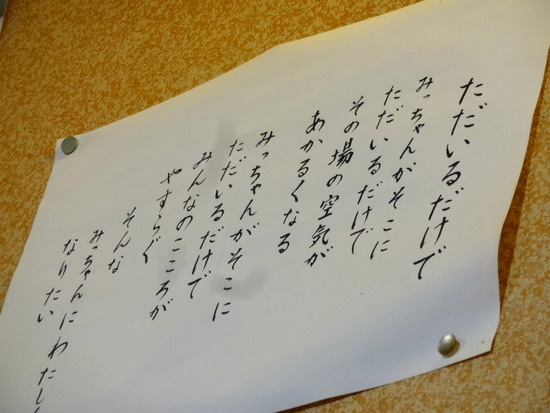 ただいるだけで
みっちゃんがそこに
ただいるだけで
その場の空気が
あかるくなる
みっちゃんがそこに
ただいるだけで
みんなのこころが
やすらぐ
そんな
みっちゃんにわたし
なりたい